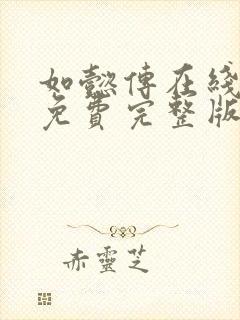 如懿傅在綫
免費完整版
赤靈芝